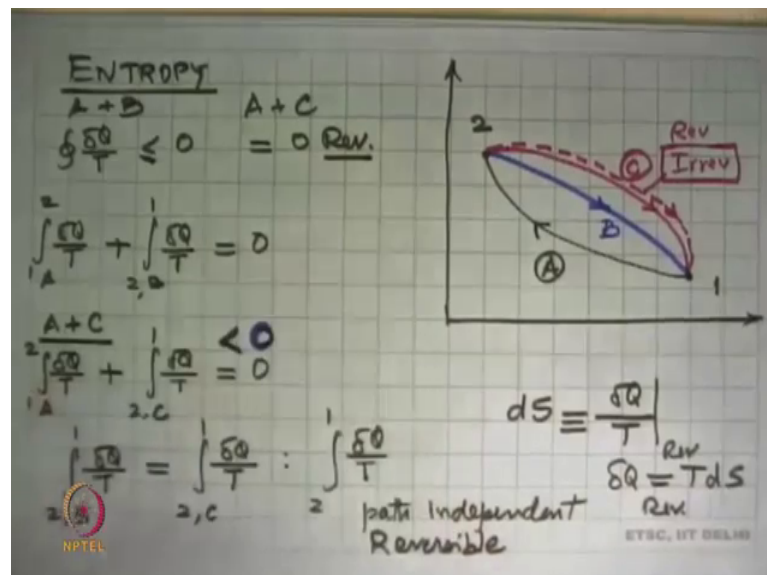 ENTROPY
A + B A + C
∮ δQ/T ≤ 0 = 0 Rev.
∫ 1A 2 δQ/T + ∫ 2,B 1 δQ/T = 0
A + C
∫ 1A 2 δQ/T + ∫ 2,C 1 δQ/T = 0 < 0
∫ 2, 1 δQ/T = ∫ 2,C 1 δQ/T : ∫ 2 1 δQ/T
path Independent
Reversible
2
Rev
C Irrev
B
A
1
dS ≡ δQ/T | Rev
δQ = TdS
Rev.
NPTEL
ETSC, IIT DELHI